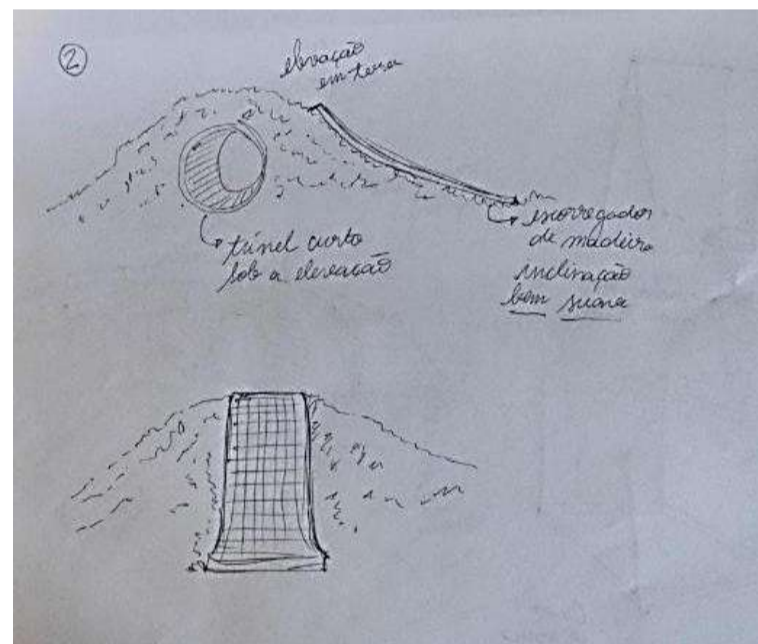 2
elevação
em terra
túnel curto
sob a elevação
escorregador
de madeira
inclinação
bem suave